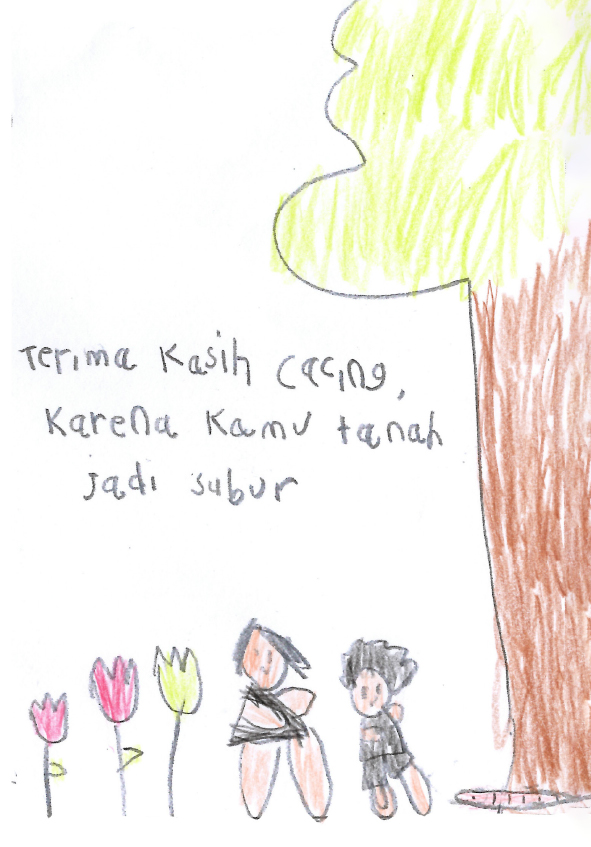 Terima Kasih Cacing,
Karena Kamu tanah
jadi subur